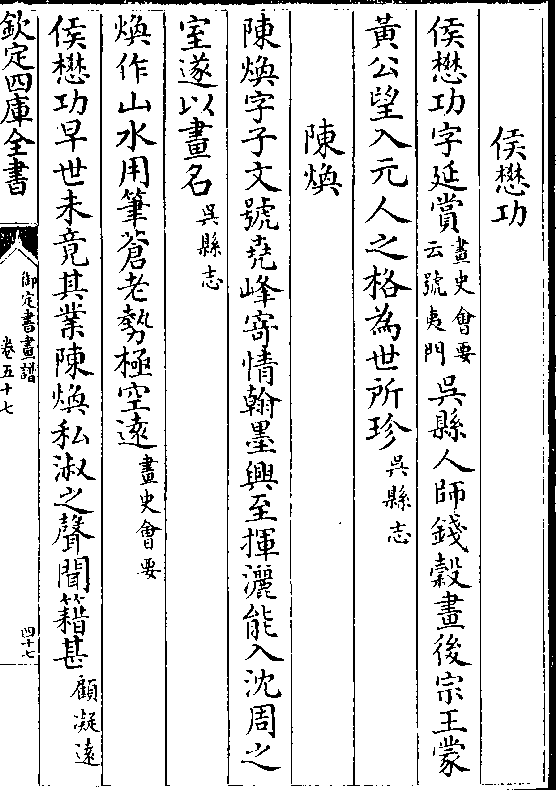 侯懋功
侯懋功字延賞畫史會要云號夷門吳縣人師錢穀畫後宗王蒙
黃公望入元人之格為世所珍吳縣志
陳煥
陳煥字子文號堯峰寄情翰墨興至揮灑能入沈周之
室遂以畫名吳縣志
煥作山水用筆蒼老勢極空遠畫史會要
侯懋功早世未竟其業陳煥私淑之聲聞籍甚顧凝遠
欽定四庫全書
御定書畫譜
卷五十七
四十七